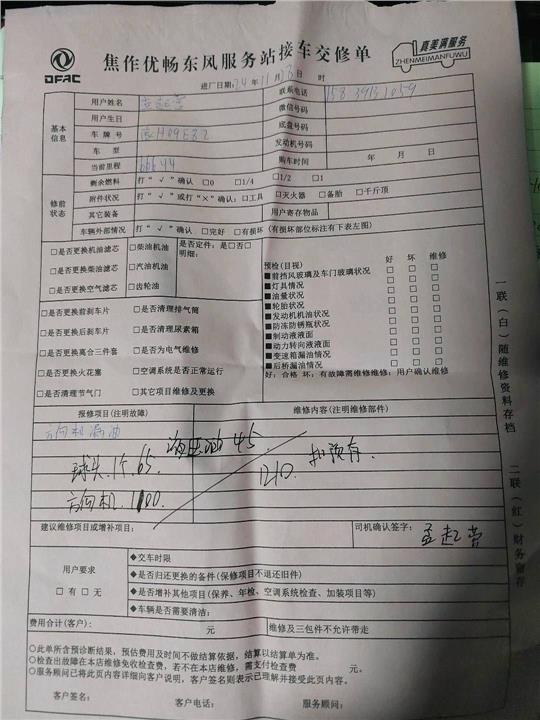 DFAC
焦作优畅东风服务站接车交修单
真美满服务
ZHENMEIMANFUWU
进厂日期:24年11月28日 时
基本信息
用户姓名 孟起营
联系电话 15839131059
用户生日
微信号码
车牌号 豫H09E82
底盘号码
车型
发动机号码
当前里程 66644
购车时间 年 月 日
修前状态
剩余燃料 打“√”确认 □0 □1/4 □1/2 □1
附件状况 打“√”或打“×”确认:□工具 □灭火器 □备胎 □千斤顶
其它装备
用户寄存物品
车辆外部情况 打“√”确认 □完好 □有损坏(有损坏部位标注有下表左图)
□是否更换机油滤芯 □柴油机油
□是否更换柴油滤芯 □汽油机油
□是否更换空气滤芯 □齿轮油
是否定件:是□否□
明细:
□是否更换前刹片 □是否清理排气筒
□是否更换后刹片 □是否清理尿素箱
□是否更换离合三件套 □是否为电气维修
□是否更换火花塞 □空调系统是否正常运行
□是否清理节气门 □其它项目维修及更换
预检(目视) 好 坏 维修
■前挡风玻璃及车门玻璃状况 □ □ □
■灯具情况 □ □ □
■油量状况 □ □ □
■轮胎状况 □ □ □
■发动机机油状况 □ □ □
■防冻防锈瓶状况 □ □ □
■制动液液面 □ □ □
■动力转向液液面 □ □ □
■变速箱漏油情况 □ □ □
■后桥漏油情况 □ □ □
好:合格 坏:有故障需维修维修:用户确认维修
报修项目(注明故障)
维修内容(注明维修部件)
方向机漏油
液压油45.
球头.1个.65.
1210.
方向机.1100.
建议维修项目或增补项目:
司机确认签字: 孟起营
用户要求
□有□无
◆交车时限
◆是否归还更换的备件(保修项目不退还旧件)
◆是否增补其他项目(保养、年检、空调系统检查、加装项目等)
◆车辆是否需要清洁:
费用合计(客户): 元
维修及三包件不允许带走
○此单所含预诊断结果,预估费用及时间不做结算依据,结算以结算单为准。
○检查出故障在本店维修免收检查费,若不在本店维修,需支付检查费 元。
○服务顾问已将此页内容详细向客户说明,客户签名则表示已理解并接受此页内容。
客户签名: 客户电话: 服务顾问:
一联(白)随维修资料存档
二联(红)财务留存